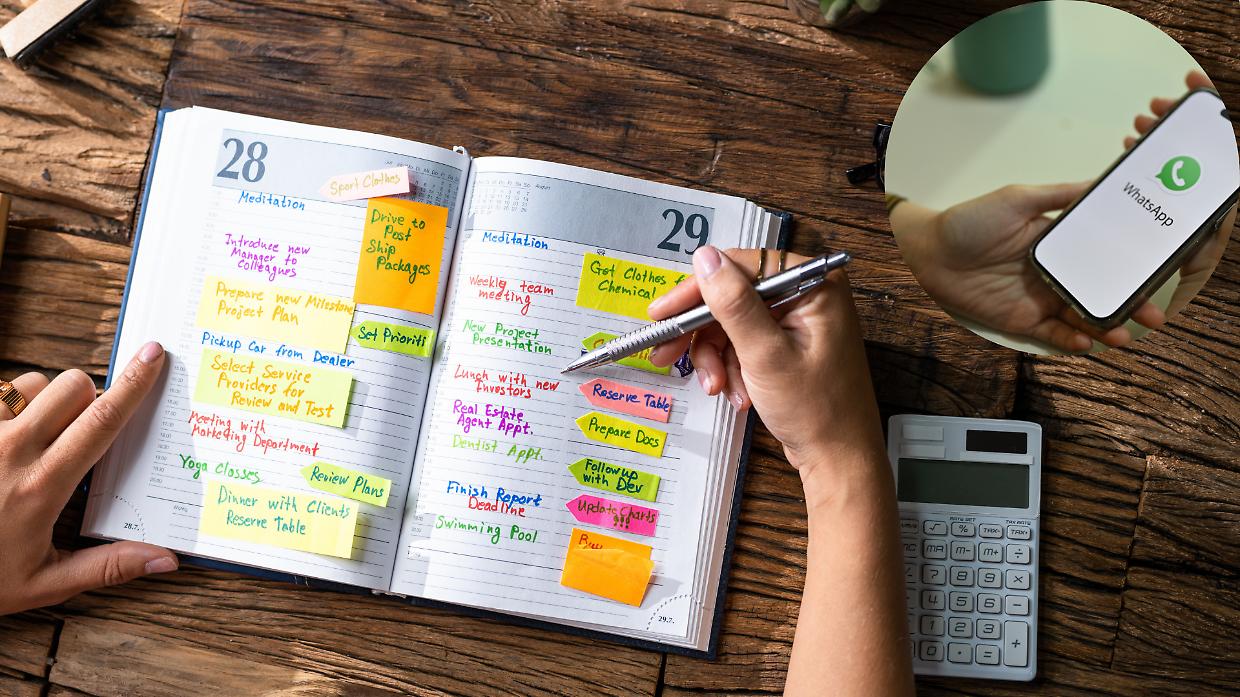 28
Sport Clothes
Meditation
Drive to
Post
Ship
Packages
Introduce new
Manager to
Colleagues
Prepare new Milestone
Project Plan
Set Prioriti
Pickup Car from Dealer
Select Service
Providers for
Review and Test
Meeting with
Marketing Department
Yoga Classes
Review Plans
Dinner with Clients
Reserve Table
28.7.
August
29
Meditation
Get Clothes f
Chemical
Weekly team
meeting
New Project
Presentation
Lunch with new
Investors
Reserve Table
Real Estate
Agent Appt.
Prepare Docs
Dentist Appt.
Follow up
with Dev
Finish Report
Deadline
Update Charts
!!!
Swimming Pool
29.7.
WhatsApp
√ % TAX- TAX+
MR M- M+ ÷
7 8 9 ×
4 5 6 −
1 2 3 +
0 .  =